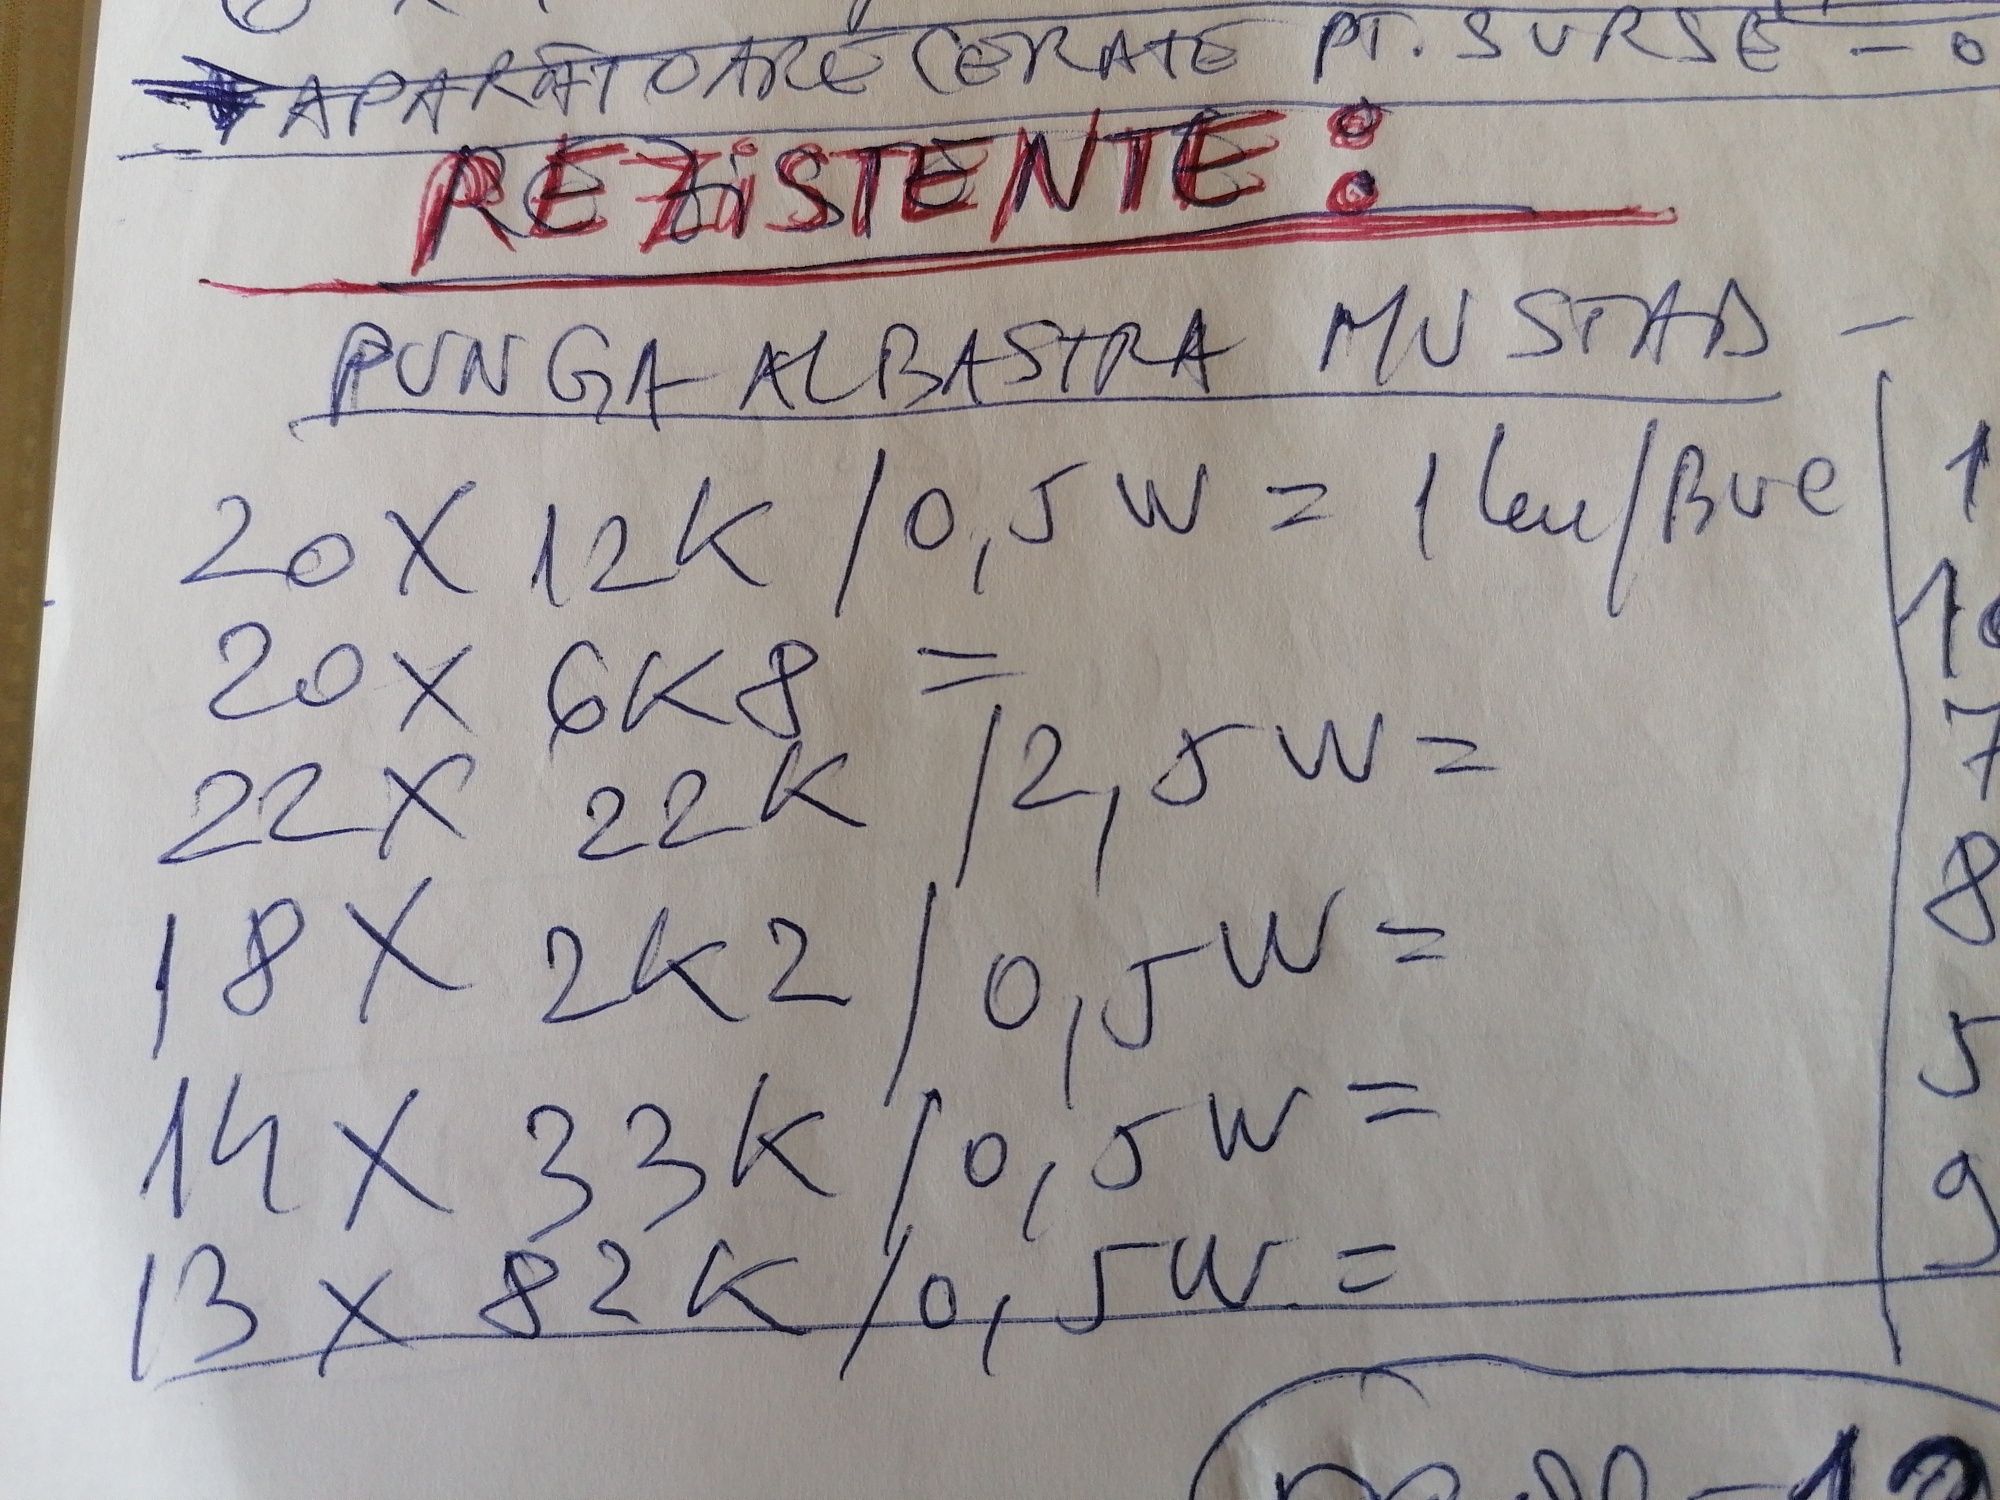 APARĂTOARE CERATE PT. SURSE - 0
REZISTENTE:
PUNGA ALBASTRA MUSTAD -
20 X 12K / 0,5W = 1 leu/Buc
20 X 6K8 =
22 X 22K / 2,5W =
18 X 2K2 / 0,5W =
14 X 33K / 0,5W =
13 X 82K / 0,5W =
1
10
7
8
5
9